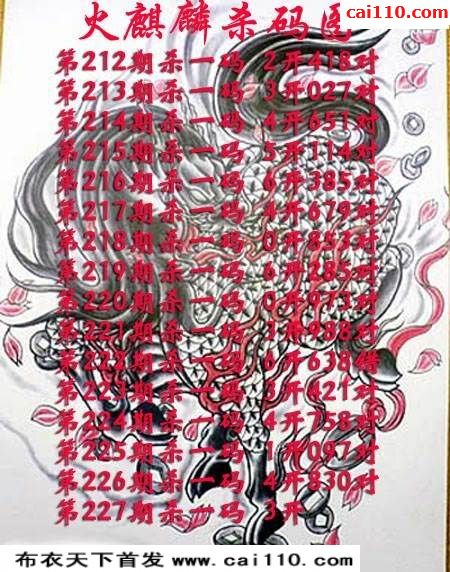 cai110.com
火麒麟杀码臣
第212期杀一码 2开418对
第213期杀一码 3开027对
第214期杀一码 4开651对
第215期杀一码 5开114对
第216期杀一码 6开385对
第217期杀一码 4开679对
第218期杀一码 0开853对
第219期杀一码 6开285对
第220期杀一码 0开973对
第221期杀一码 3开988对
第222期杀一码 6开638错
第223期杀一码 3开421对
第224期杀一码 4开758对
第225期杀一码 1开097对
第226期杀一码 4开830对
第227期杀一码 3开
布衣天下首发 www.cai110.com